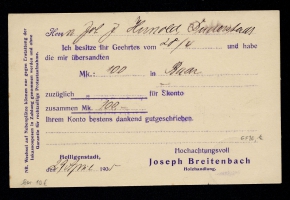 Herrn Jos. J.
Ich besitze Ihr Geehrtes vom 20/4 und habe
die mir übersandten
Mk.: 100 in Baar
zuzüglich " " für Skonto
zusammen Mk. 100.-
Ihrem Konto bestens dankend gutgeschrieben.
Hochachtungsvoll
Heiligenstadt,
Joseph Breitenbach
Holzhandlung.
den 190
NB. Wechsel auf Nebenplätze können nur gegen Erstattung der
Inkassospesen in Zahlung genommen werden und ohne
Garantie für rechtzeitige Protestaufnahme.